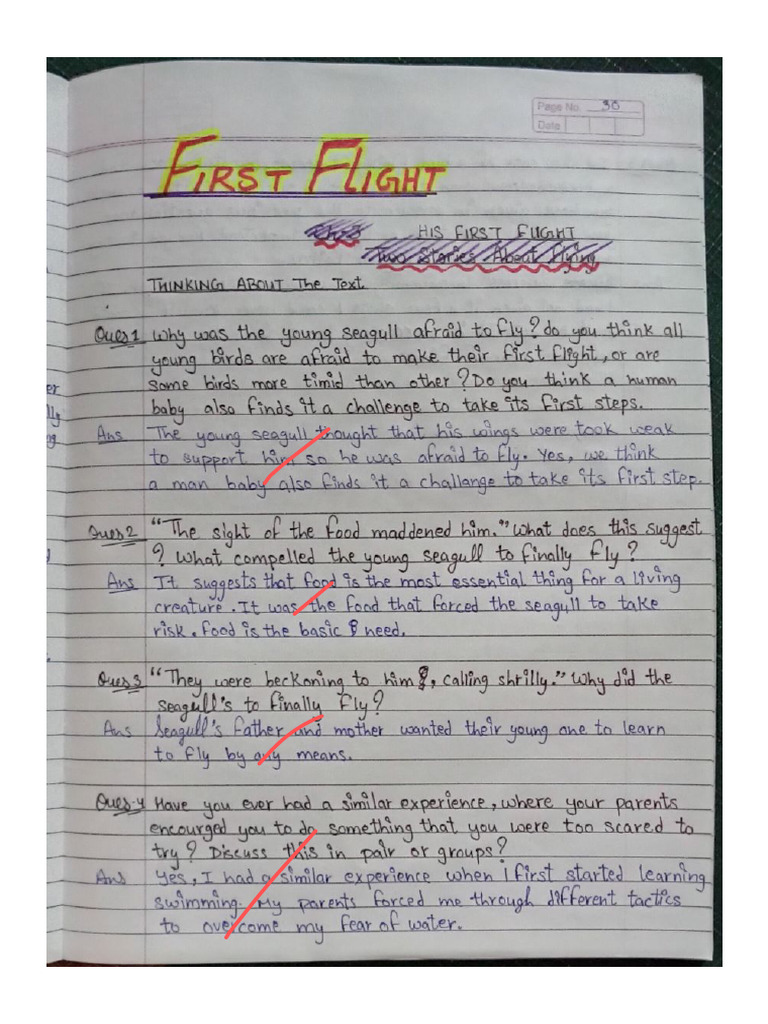 Page No. 30
Date
FIRST FLIGHT
HIS FIRST FLIGHT
Two Stories About Flying
THINKING ABOUT The Text
Ques 1 Why was the young seagull afraid to fly? do you think all
young birds are afraid to make their first flight, or are
some birds more timid than other? Do you think a human
er
baby also finds it a challenge to take its first steps.
lly
Ans The young seagull thought that his wings were took weak
ng
to support him so he was afraid to fly. Yes, we think
a man baby also finds it a challange to take its first step.
Ques 2 "The sight of the food maddened him." What does this suggest
? What compelled the young seagull to finally fly?
Ans It suggests that food is the most essential thing for a living
creature. It was the food that forced the seagull to take
risk. Food is the basic need.
Ques 3 "They were beckoning to him, calling shrilly." Why did the
seagull's to finally fly?
Ans Seagull's father and mother wanted their young one to learn
to fly by any means.
Ques-4 Have you ever had a similar experience, where your parents
encourged you to do something that you were too scared to
try? Discuss this in pair or groups?
Ans Yes, I had a similar experience when I first started learning
swimming. My parents forced me through different tactics
to overcome my fear of water.